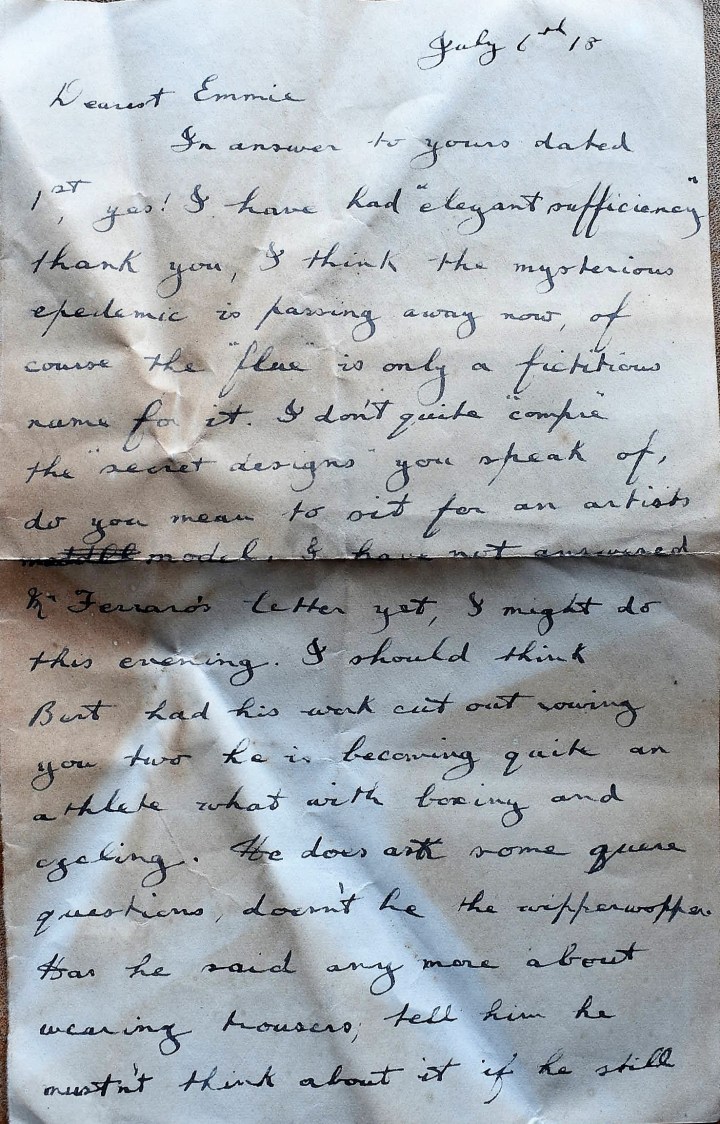 July 6rd 18
Dearest Emmie
In answer to yours dated
1st, yes! I have had "elegant sufficiency"
thank you, I think the mysterious
epedemic is passing away now, of
course the "flue" is only a fictitious
name for it. I don't quite "compre"
the "secret designs" you speak of,
do you mean to sit for an artists
model. I have not answered
Mr Ferraro's letter yet, I might do
this evening. I should think
Burt had his work cut out rowing
you two he is becoming quite an
athlete what with boxing and
cycling. He does ask some quere
questions, doesn't he the wipperwopper.
Has he said any more about
wearing trousers, tell him he
mustn't think about it if he still